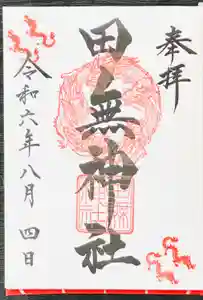 奉拝
田無神社
令和六年八月四日